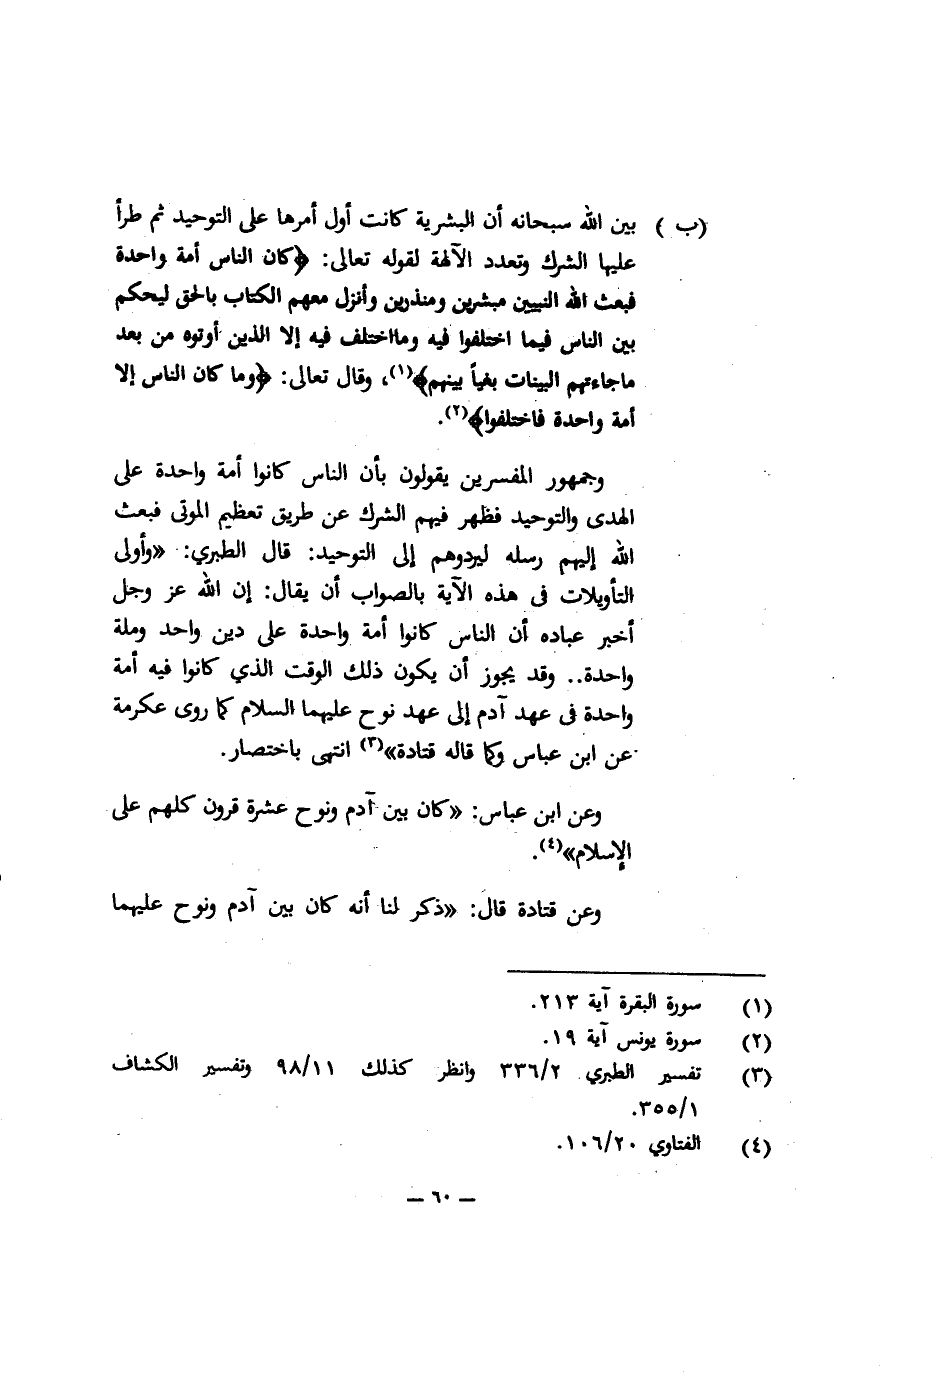 (ب) بين الله سبحانه أن البشرية كانت أول أمرها على التوحيد ثم طرأ
عليها الشرك وتعدد الآلهة لقوله تعالى: ﴿كان الناس أمة واحدة
فبعث الله النبيين مبشرين ومنذرين وأنزل معهم الكتاب بالحق ليحكم
بين الناس فيما اختلفوا فيه ومااختلف فيه إلا الذين أوتوه من بعد
ماجاءتهم البينات بغياً بينهم﴾(١)، وقال تعالى: ﴿وما كان الناس إلا
أمة واحدة فاختلفوا﴾(٢).
وجمهور المفسرين يقولون بأن الناس كانوا أمة واحدة على
الهدى والتوحيد فظهر فيهم الشرك عن طريق تعظيم الموتى فبعث
الله إليهم رسله ليردوهم إلى التوحيد: قال الطبري: «وأولى
التأويلات في هذه الآية بالصواب أن يقال: إن الله عز وجل
أخبر عباده أن الناس كانوا أمة واحدة على دين واحد وملة
واحدة.. وقد يجوز أن يكون ذلك الوقت الذي كانوا فيه أمة
واحدة في عهد آدم إلى عهد نوح عليهما السلام كما روى عكرمة
عن ابن عباس وكما قاله قتادة»(٣) انتهى باختصار.
وعن ابن عباس: «كان بين آدم ونوح عشرة قرون كلهم على
الإسلام»(٤).
وعن قتادة قال: «ذكر لنا أنه كان بين آدم ونوح عليهما
(١) سورة البقرة آية ٢١٣.
(٢) سورة يونس آية ١٩.
(٣) تفسير الطبري ٣٣٦/٢ وانظر كذلك ٩٨/١١ وتفسير الكشاف
٣٥٥/١.
(٤) الفتاوي ١٠٦/٢٠.
— ٦٠ —